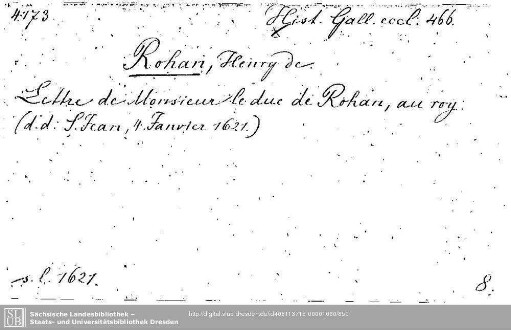 4173
Hist. Gall. eccl. 466.
Rohan, Henry de
Lettre de Monsieur le duc de Rohan, au roy.
(d.d. S. Jean, 4. Janvier 1621.)
s. l. 1621.
8.
SLUB
Sächsische Landesbibliothek –
Staats- und Universitätsbibliothek Dresden